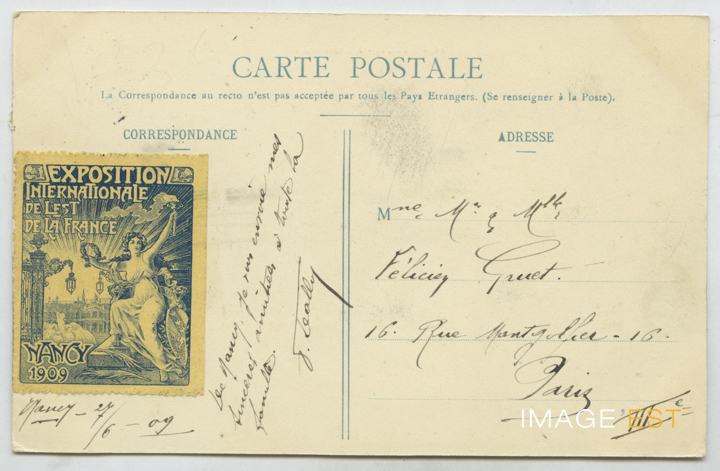 CARTE POSTALE
La Correspondance au recto n'est pas acceptée par tous les Pays Etrangers. (Se renseigner à la Poste).
CORRESPONDANCE
EXPOSITION
INTERNATIONALE
DE L'EST
DE LA FRANCE
NANCY
1909
Nancy - 27/6 - 09
De Nancy, je vous envoie mes
sincères amitiés à toute la
famille.
ADRESSE
Mme, Mr & Mlle
Félicien Gruet.
16. Rue Montgolfier - 16.
Paris
IIIe
IMAGE'EST